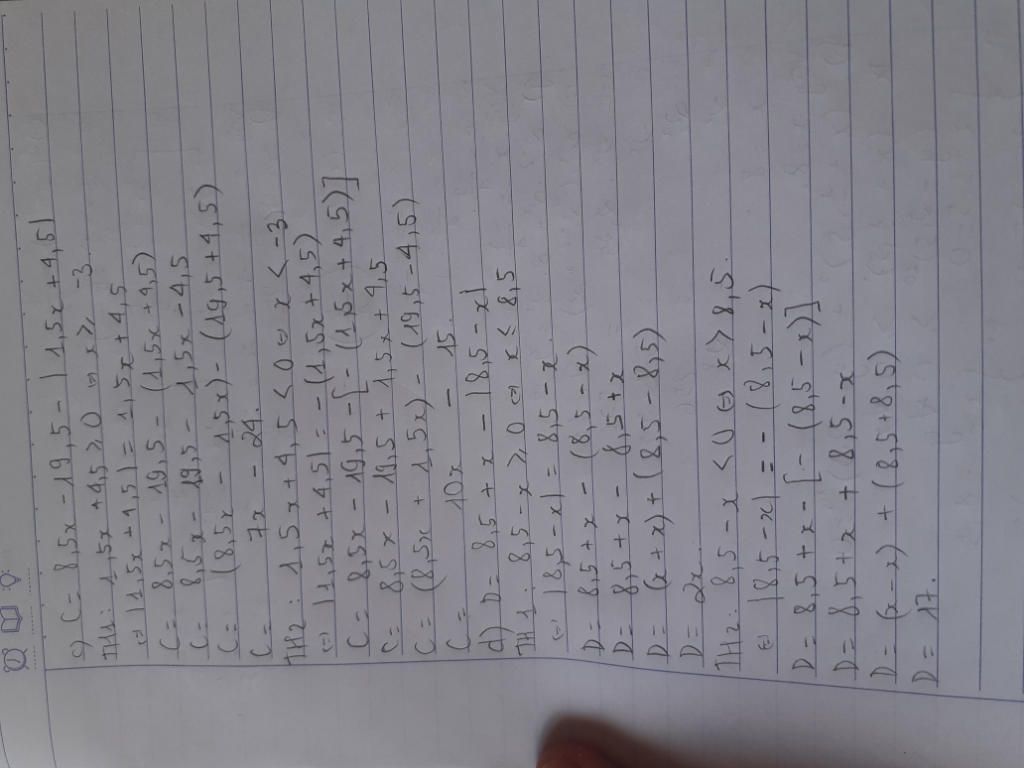 c) C = 8,5x - 19,5 - |1,5x + 4,5|
TH1: 1,5x + 4,5 ≥ 0 ⇔ x ≥ -3.
⇔ |1,5x + 4,5| = 1,5x + 4,5
C = 8,5x - 19,5 - (1,5x + 4,5)
C = 8,5x - 19,5 - 1,5x - 4,5
C = (8,5x - 1,5x) - (19,5 + 4,5)
C = 7x - 24.
TH2: 1,5x + 4,5 < 0 ⇔ x < -3
⇔ |1,5x + 4,5| = -(1,5x + 4,5)
C = 8,5x - 19,5 - [-(1,5x + 4,5)]
C = 8,5x - 19,5 + 1,5x + 4,5
C = (8,5x + 1,5x) - (19,5 - 4,5)
C = 10x - 15
d) D = 8,5 + x - |8,5 - x|
TH1. 8,5 - x ≥ 0 ⇔ x ≤ 8,5
⇔ |8,5 - x| = 8,5 - x
D = 8,5 + x - (8,5 - x)
D = 8,5 + x - 8,5 + x
D = (x + x) + (8,5 - 8,5)
D = 2x
TH2: 8,5 - x < 0 ⇔ x > 8,5.
⇔ |8,5 - x| = -(8,5 - x)
D = 8,5 + x - [-(8,5 - x)]
D = 8,5 + x + 8,5 - x
D = (x - x) + (8,5 + 8,5)
D = 17.